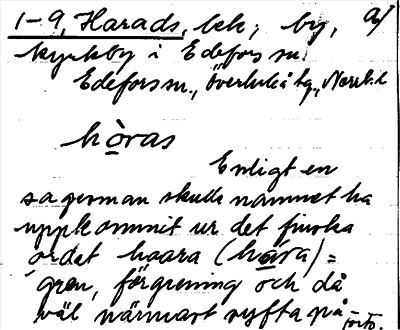 1-9, Harads, bbk; by, a/
kyrkby i Edefors sn.
Edefors sn., Överluleå tg., Norrb. l
hòras
Enligt en
sagesman skulle namnet ha
uppkommit ur det finska
ordet haara (hára) =
gren, förgrening och då
väl närmast syfta på
forts.